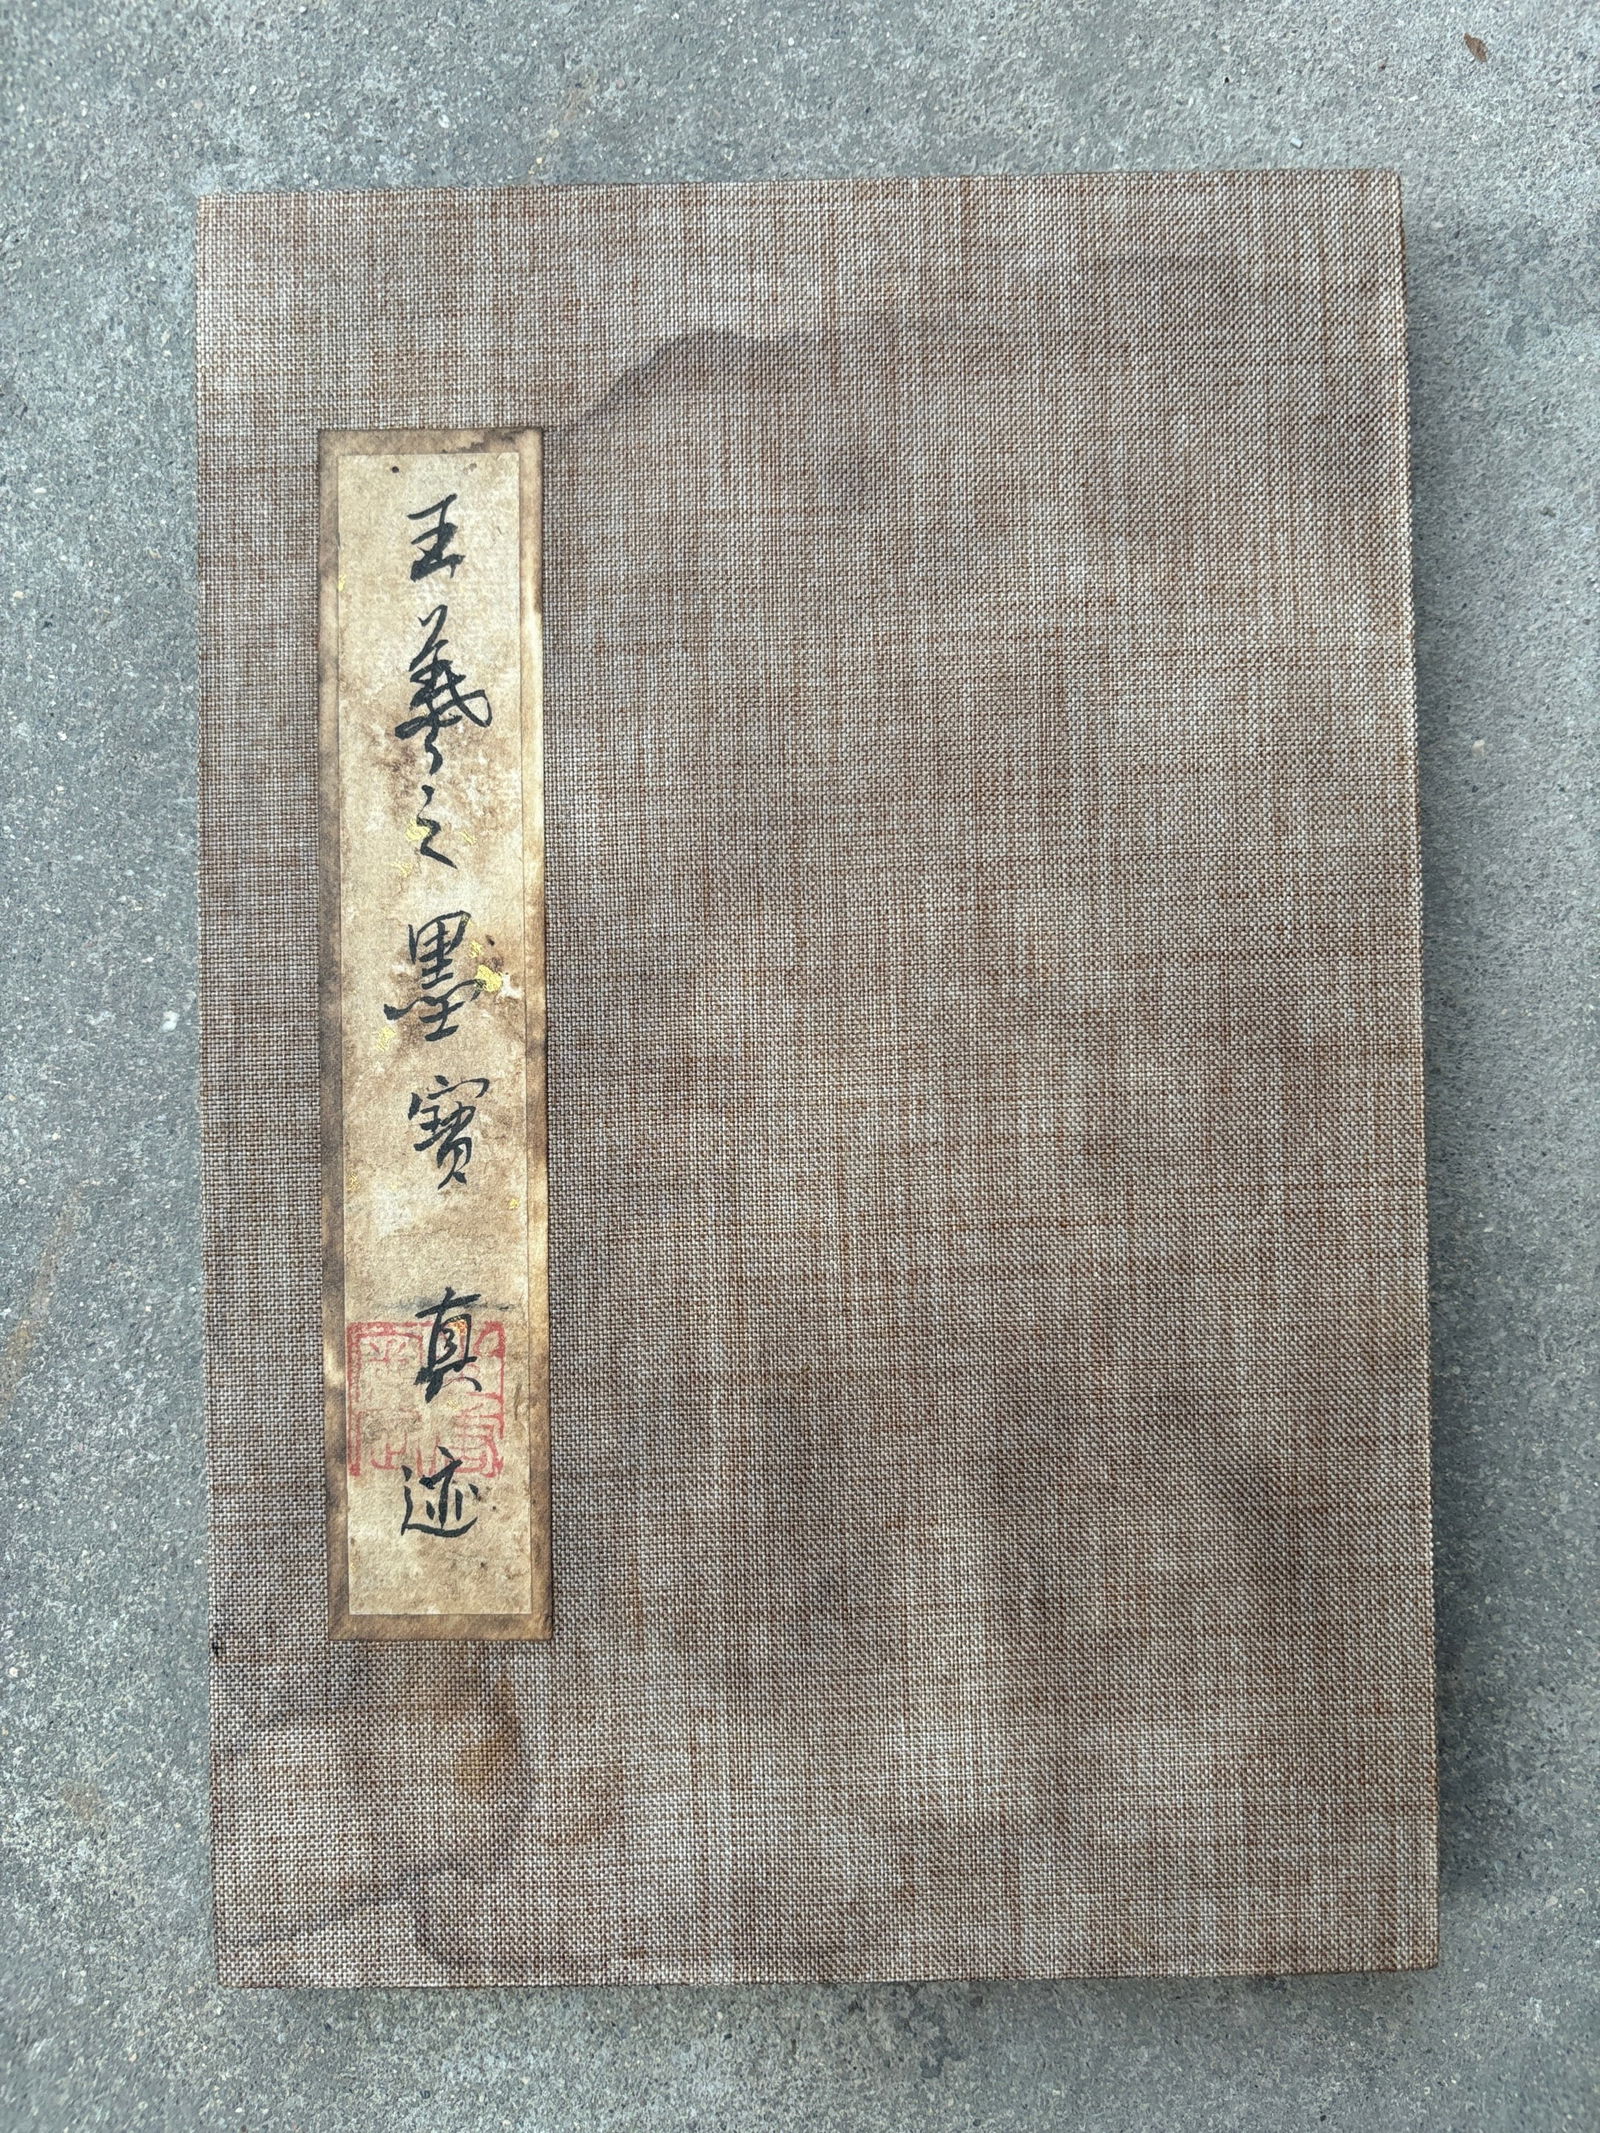 王羲之墨寶 真迹